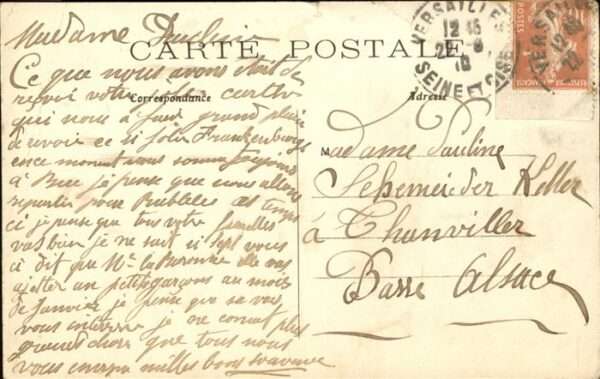 CARTE POSTALE
Correspondance
Adresse
VERSAILLES
12 45
SEINE ET OISE
Madame Pauline
Ce que nous avons était de
revoir votre jolie carte
qui nous a fait grand plaisir
de revoir ce si joli Frankenbourg
en ce moment nous sommes toujours
à Buc je pense que nous allons
repartir pour
ci je pense que tous votre familles
vas bien je ne sait si sept vous
ai dit que Mme la Baronne elle vas
un petit garçons au mois
de Janvier je pense que sa vas
vous intéresse je ne connait plus
grand chose que tous nous
vous envoyon milles bons
Madame Pauline
Schemeider Keller
à Thanviller
Basse Alsace